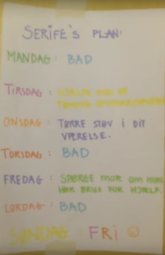 SERIFE'S PLAN:
MANDAG: BAD
TIRSDAG:
ONSDAG: TØRRE STØV I DIT
VÆRELSE.
TORSDAG: BAD
FREDAG: SPØRGE MOR OM HUN
HAR BRUG FOR HJÆLP.
LØRDAG: BAD
SØNDAG FRI